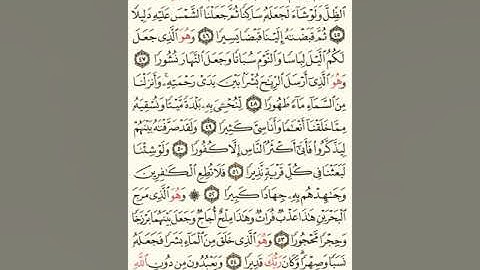 ٱلظِّلَّ وَلَوْ شَآءَ لَجَعَلَهُۥ سَاكِنًا ثُمَّ جَعَلْنَا ٱلشَّمْسَ عَلَيْهِ دَلِيلًا
٤٥ ثُمَّ قَبَضْنَٰهُ إِلَيْنَا قَبْضًا يَسِيرًا ٤٦ وَهُوَ ٱلَّذِى جَعَلَ
لَكُمُ ٱلَّيْلَ لِبَاسًا وَٱلنَّوْمَ سُبَاتًا وَجَعَلَ ٱلنَّهَارَ نُشُورًا ٤٧
وَهُوَ ٱلَّذِىٓ أَرْسَلَ ٱلرِّيَٰحَ بُشْرًۢا بَيْنَ يَدَىْ رَحْمَتِهِۦ ۚ وَأَنزَلْنَا
مِنَ ٱلسَّمَآءِ مَآءً طَهُورًا ٤٨ لِّنُحْۦِىَ بِهِۦ بَلْدَةً مَّيْتًا وَنُسْقِيَهُۥ
مِمَّا خَلَقْنَآ أَنْعَٰمًا وَأَنَاسِىَّ كَثِيرًا ٤٩ وَلَقَدْ صَرَّفْنَٰهُ بَيْنَهُمْ
لِيَذَّكَّرُوا۟ فَأَبَىٰٓ أَكْثَرُ ٱلنَّاسِ إِلَّا كُفُورًا ٥٠ وَلَوْ شِئْنَا
لَبَعَثْنَا فِى كُلِّ قَرْيَةٍ نَّذِيرًا ٥١ فَلَا تُطِعِ ٱلْكَٰفِرِينَ
وَجَٰهِدْهُم بِهِۦ جِهَادًا كَبِيرًا ٥٢ ۞ وَهُوَ ٱلَّذِى مَرَجَ
ٱلْبَحْرَيْنِ هَٰذَا عَذْبٌ فُرَاتٌ وَهَٰذَا مِلْحٌ أُجَاجٌ وَجَعَلَ بَيْنَهُمَا بَرْزَخًا
وَحِجْرًا مَّحْجُورًا ٥٣ وَهُوَ ٱلَّذِى خَلَقَ مِنَ ٱلْمَآءِ بَشَرًا فَجَعَلَهُۥ
نَسَبًا وَصِهْرًا ۗ وَكَانَ رَبُّكَ قَدِيرًا ٥٤ وَيَعْبُدُونَ مِن دُونِ ٱللَّهِ